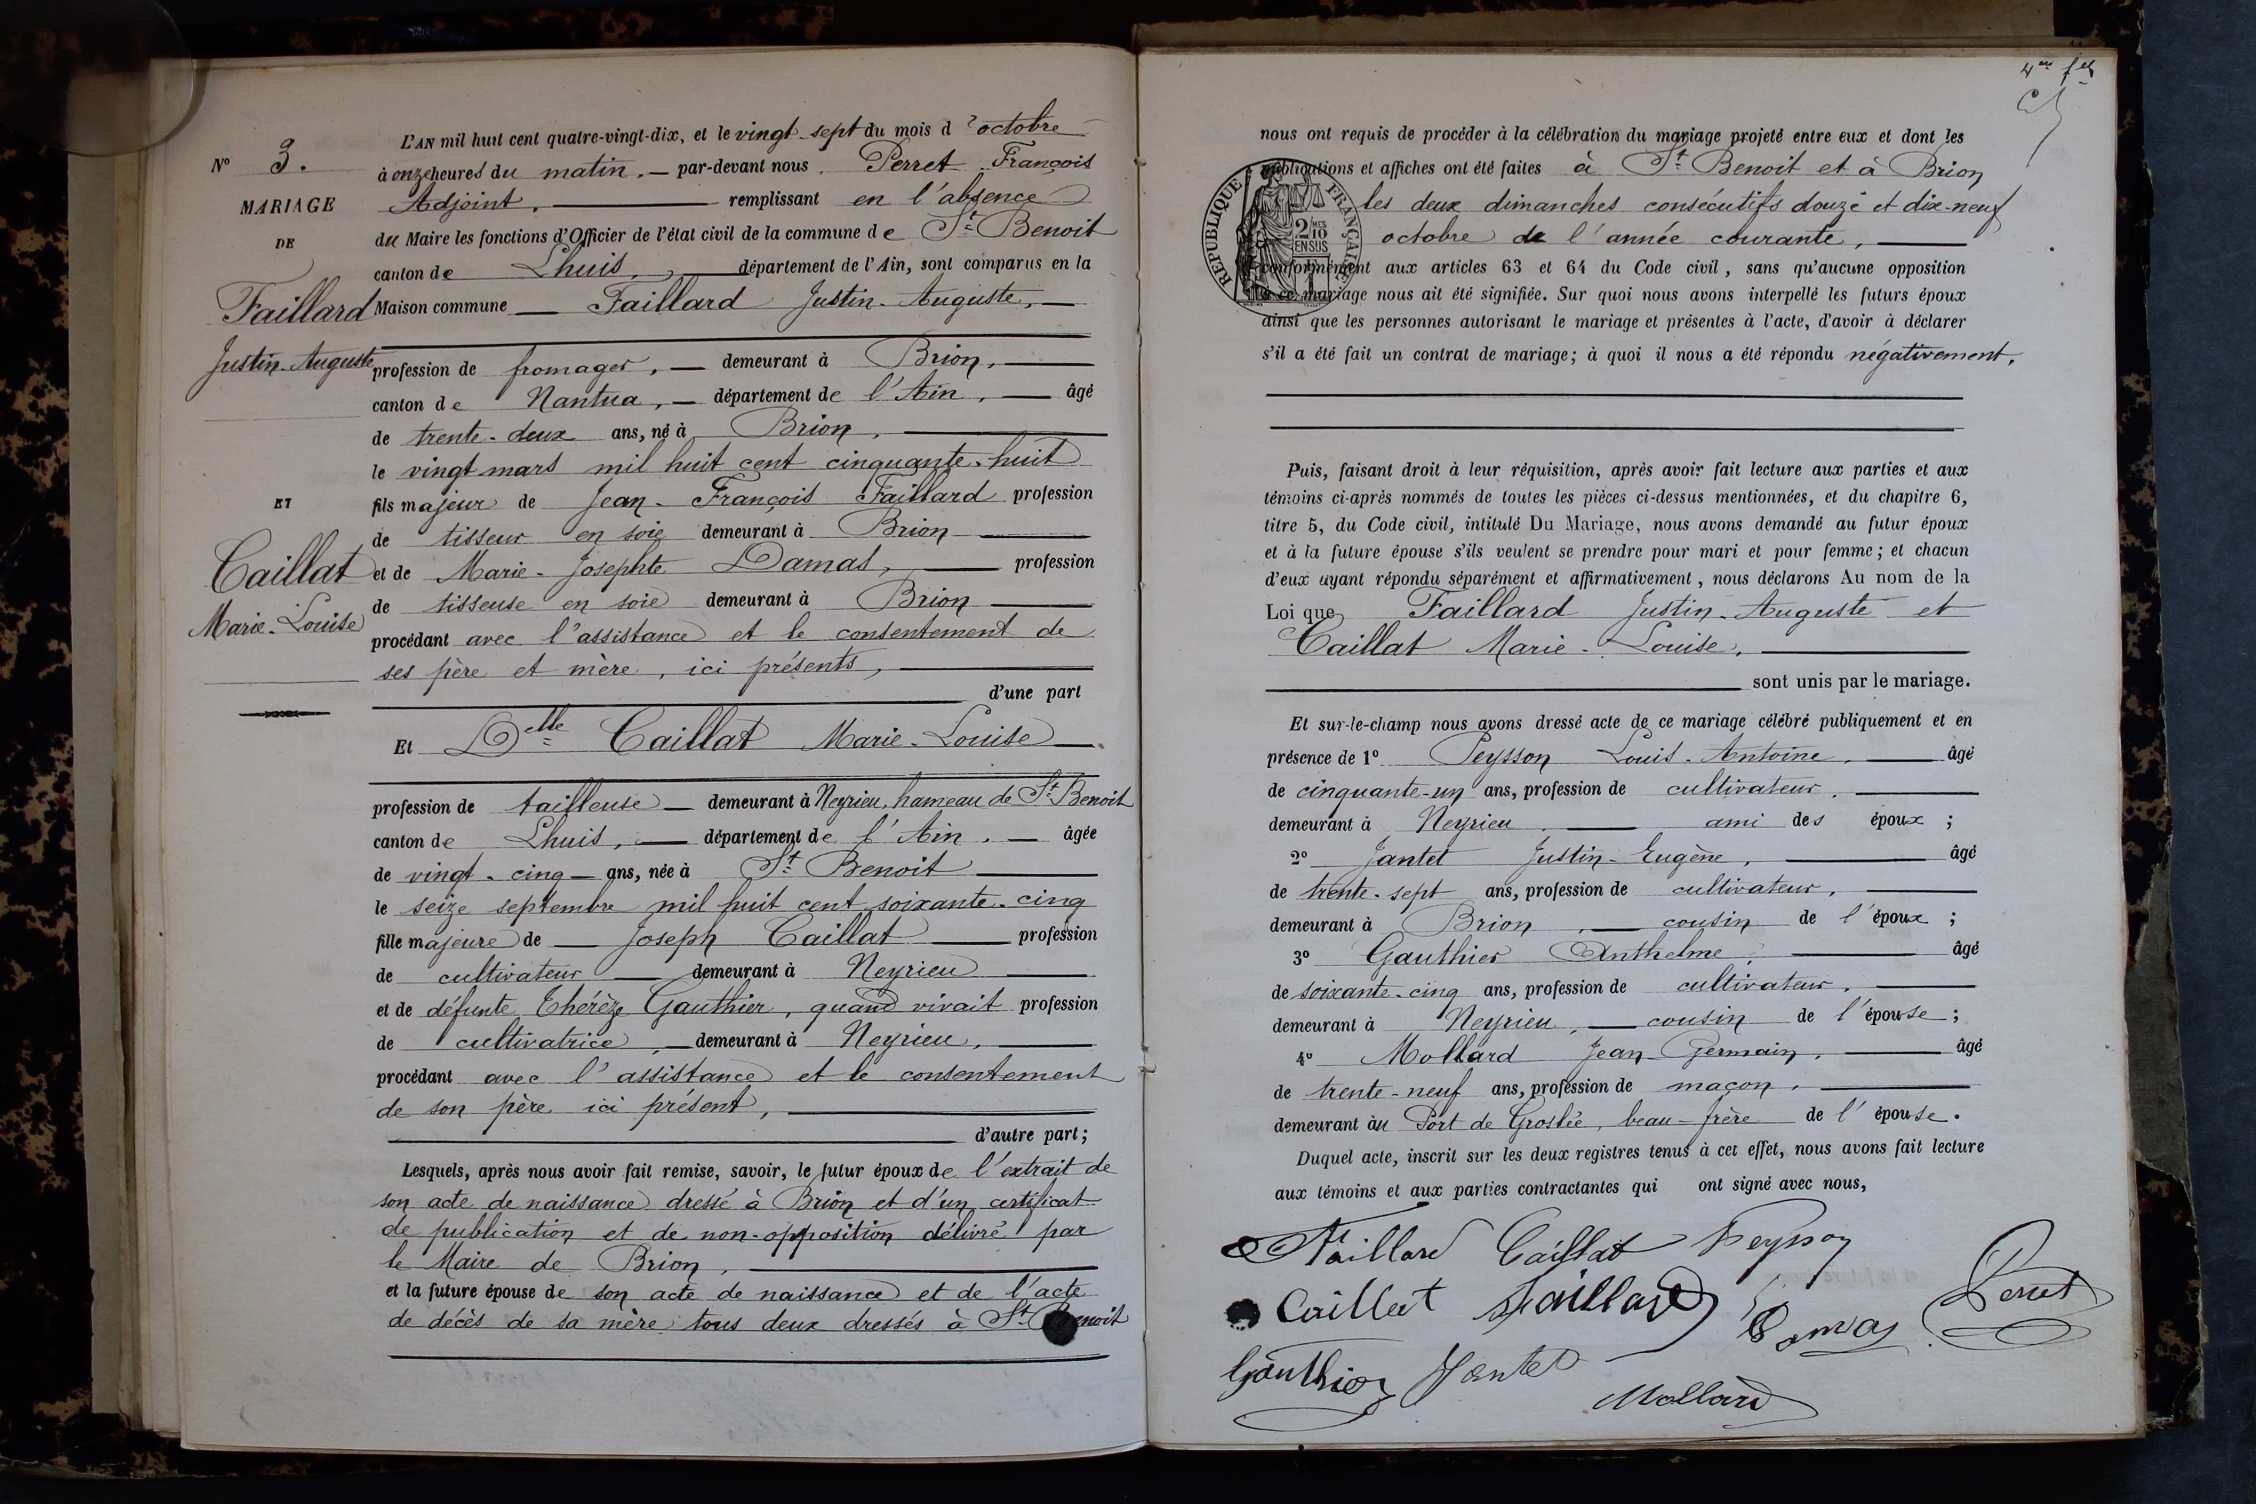 N° 3.
MARIAGE
DE
Faillard
Justin-Auguste
ET
Caillat
Marie-Louise
L'AN mil huit cent quatre-vingt-dix, et le vingt-sept du mois d'octobre
à onze heures du matin. — par-devant nous, Perret François
Adjoint, — remplissant en l'absence
du Maire les fonctions d'Officier de l'état civil de la commune de St Benoit
canton de Lhuis, — département de l'Ain, sont comparus en la
Maison commune — Faillard Justin-Auguste, —
profession de fromager, — demeurant à Brion, —
canton de Nantua, — département de l'Ain, — âgé
de trente-deux ans, né à Brion, —
le vingt mars mil huit cent cinquante-huit
fils majeur de Jean-François Faillard profession
de tisseur en soie demeurant à Brion —
et de Marie-Josephte Damas, — profession
de tisseuse en soie demeurant à Brion —
procédant avec l'assistance et le consentement de
ses père et mère, ici présents, —
d'une part
Et Delle Caillat Marie-Louise —
profession de tailleuse — demeurant à Neyrieu, hameau de St Benoit
canton de Lhuis, — département de l'Ain. — âgée
de vingt-cinq — ans, née à St Benoit —
le seize septembre mil huit cent soixante-cinq
fille majeure de — Joseph Caillat — profession
de cultivateur — demeurant à Neyrieu —
et de défunte Thérèze Gauthier, quand vivait profession
de cultivatrice, — demeurant à Neyrieu, —
procédant avec l'assistance et le consentement
de son père ici présent, —
d'autre part;
Lesquels, après nous avoir fait remise, savoir, le futur époux de l'extrait de
son acte de naissance dressé à Brion et d'un certificat
de publication et de non-opposition délivré par
le Maire de Brion, —
et la future épouse de son acte de naissance et de l'acte
de décès de sa mère tous deux dressés à St Benoit
nous ont requis de procéder à la célébration du mariage projeté entre eux et dont les
publications et affiches ont été faites à St Benoit et à Brion
les deux dimanches consécutifs douze et dix-neuf
octobre de l'année courante, —
conformément aux articles 63 et 64 du Code civil, sans qu'aucune opposition
à ce mariage nous ait été signifiée. Sur quoi nous avons interpellé les futurs époux
ainsi que les personnes autorisant le mariage et présentes à l'acte, d'avoir à déclarer
s'il a été fait un contrat de mariage; à quoi il nous a été répondu négativement.
RÉPUBLIQUE FRANÇAISE
2/10 MES
EN SUS
Puis, faisant droit à leur réquisition, après avoir fait lecture aux parties et aux
témoins ci-après nommés de toutes les pièces ci-dessus mentionnées, et du chapitre 6,
titre 5, du Code civil, intitulé Du Mariage, nous avons demandé au futur époux
et à la future épouse s'ils veulent se prendre pour mari et pour femme; et chacun
d'eux ayant répondu séparément et affirmativement, nous déclarons Au nom de la
Loi que Faillard Justin-Auguste et
Caillat Marie-Louise, —
sont unis par le mariage.
Et sur-le-champ nous avons dressé acte de ce mariage célébré publiquement et en
présence de 1° Peysson Louis-Antoine, — âgé
de cinquante-un ans, profession de cultivateur, —
demeurant à Neyrieu, — ami des époux;
2° Jantet Justin-Eugène, — âgé
de trente-sept ans, profession de cultivateur, —
demeurant à Brion, — cousin de l'époux;
3° Gauthier Anthelme, — âgé
de soixante-cinq ans, profession de cultivateur, —
demeurant à Neyrieu, — cousin de l'épouse;
4° Mollard Jean-Germain, — âgé
de trente-neuf ans, profession de maçon, —
demeurant au Port de Groslée, beau-frère de l'épouse.
Duquel acte, inscrit sur les deux registres tenus à cet effet, nous avons fait lecture
aux témoins et aux parties contractantes qui ont signé avec nous,
Faillard Caillat Peysson
Caillat Faillard Damas Perret
Gauthier Jantet
Mollard